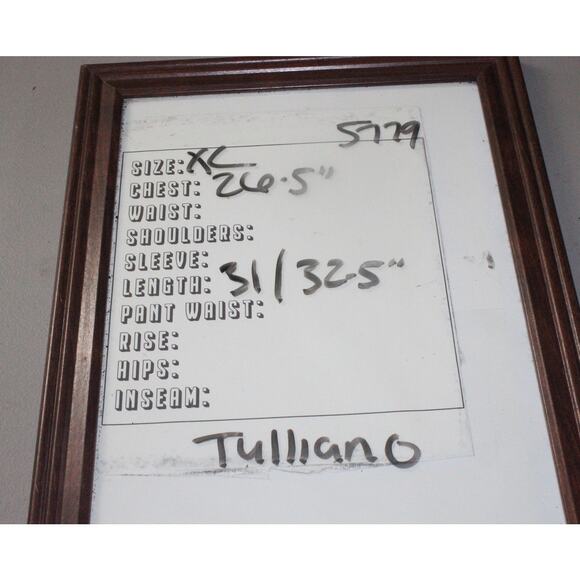 5779
SIZE: XL
CHEST: 26.5"
WAIST:
SHOULDERS:
SLEEVE:
LENGTH: 31/32.5"
PANT WAIST:
RISE:
HIPS:
INSEAM:
Tulliano